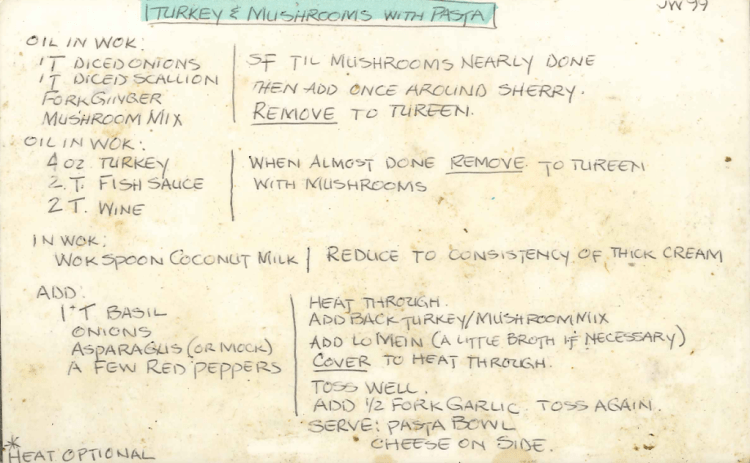 JW 99
TURKEY & MUSHROOMS WITH PASTA
OIL IN WOK:
1T DICED ONIONS
1T DICED SCALLION
FORK GINGER
MUSHROOM MIX
SF TIL MUSHROOMS NEARLY DONE
THEN ADD ONCE AROUND SHERRY.
REMOVE TO TUREEN.
OIL IN WOK:
4 OZ. TURKEY
2 T. FISH SAUCE
2 T. WINE
WHEN ALMOST DONE REMOVE TO TUREEN
WITH MUSHROOMS
IN WOK:
WOKSPOON COCONUT MILK
REDUCE TO CONSISTENCY OF THICK CREAM
ADD:
1+T BASIL
ONIONS
ASPARAGUS (OR MOCK)
A FEW RED PEPPERS
HEAT THROUGH.
ADD BACK TURKEY/MUSHROOM MIX
ADD LO MEIN (A LITTLE BROTH IF NECESSARY)
COVER TO HEAT THROUGH.
TOSS WELL.
ADD 1/2 FORK GARLIC. TOSS AGAIN.
SERVE: PASTA BOWL
CHEESE ON SIDE.
*HEAT OPTIONAL